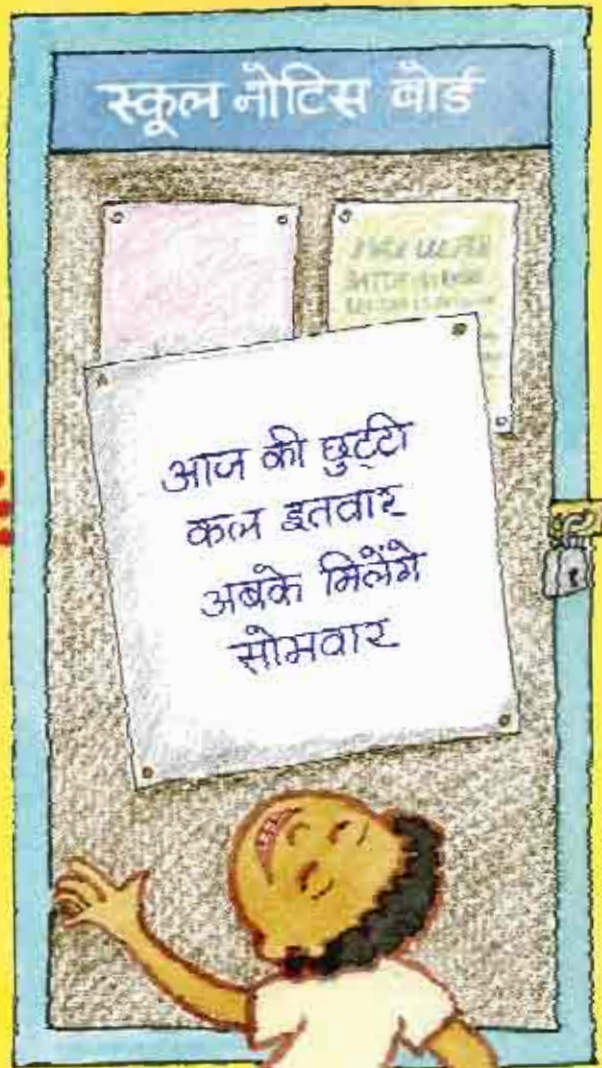 स्कूल नोटिस बोर्ड
आज की छुट्टी
कल इतवार
अबके मिलेंगे
सोमवार